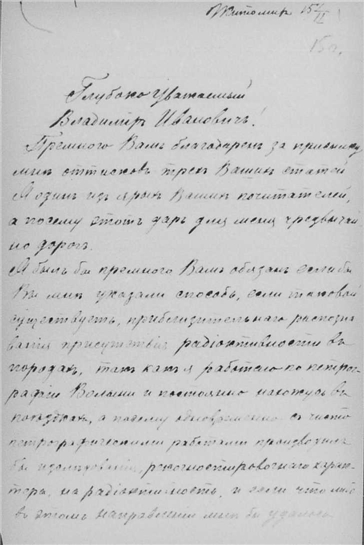 Житомир 15/II
Глубоко Уважаемый
Владимир Иванович!
Премного Вам благодарен за присылку
мне оттисков трех Ваших статей
Я один из ярых Ваших почитателей,
а потому этот дар для меня чрезвычай
но дорог.
Я был бы премного Вам обязан если бы
Вы мне указали способ, если таковой
существует, приблизительного распозна
вания присутствия радіоктивности в
породах, так как я работаю по петро
графіи Волыни и постоянно нахожусь в
поездках, а потому одновременно с чисто
петрографическими работами производил
бы изследования, рекогносцировочного харак
тера, на радіоктивность, и если что либо
в этом направлении мне бы удалось